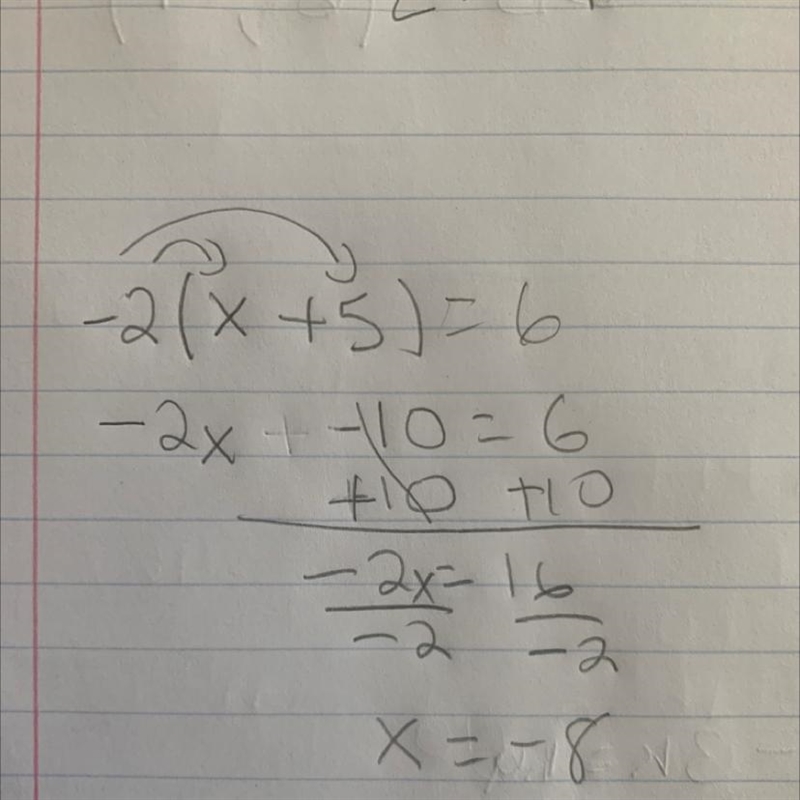 -2(x+5)=6
-2x + -10 = 6
+10 +10
-2x = 16
-2 -2
x = -8